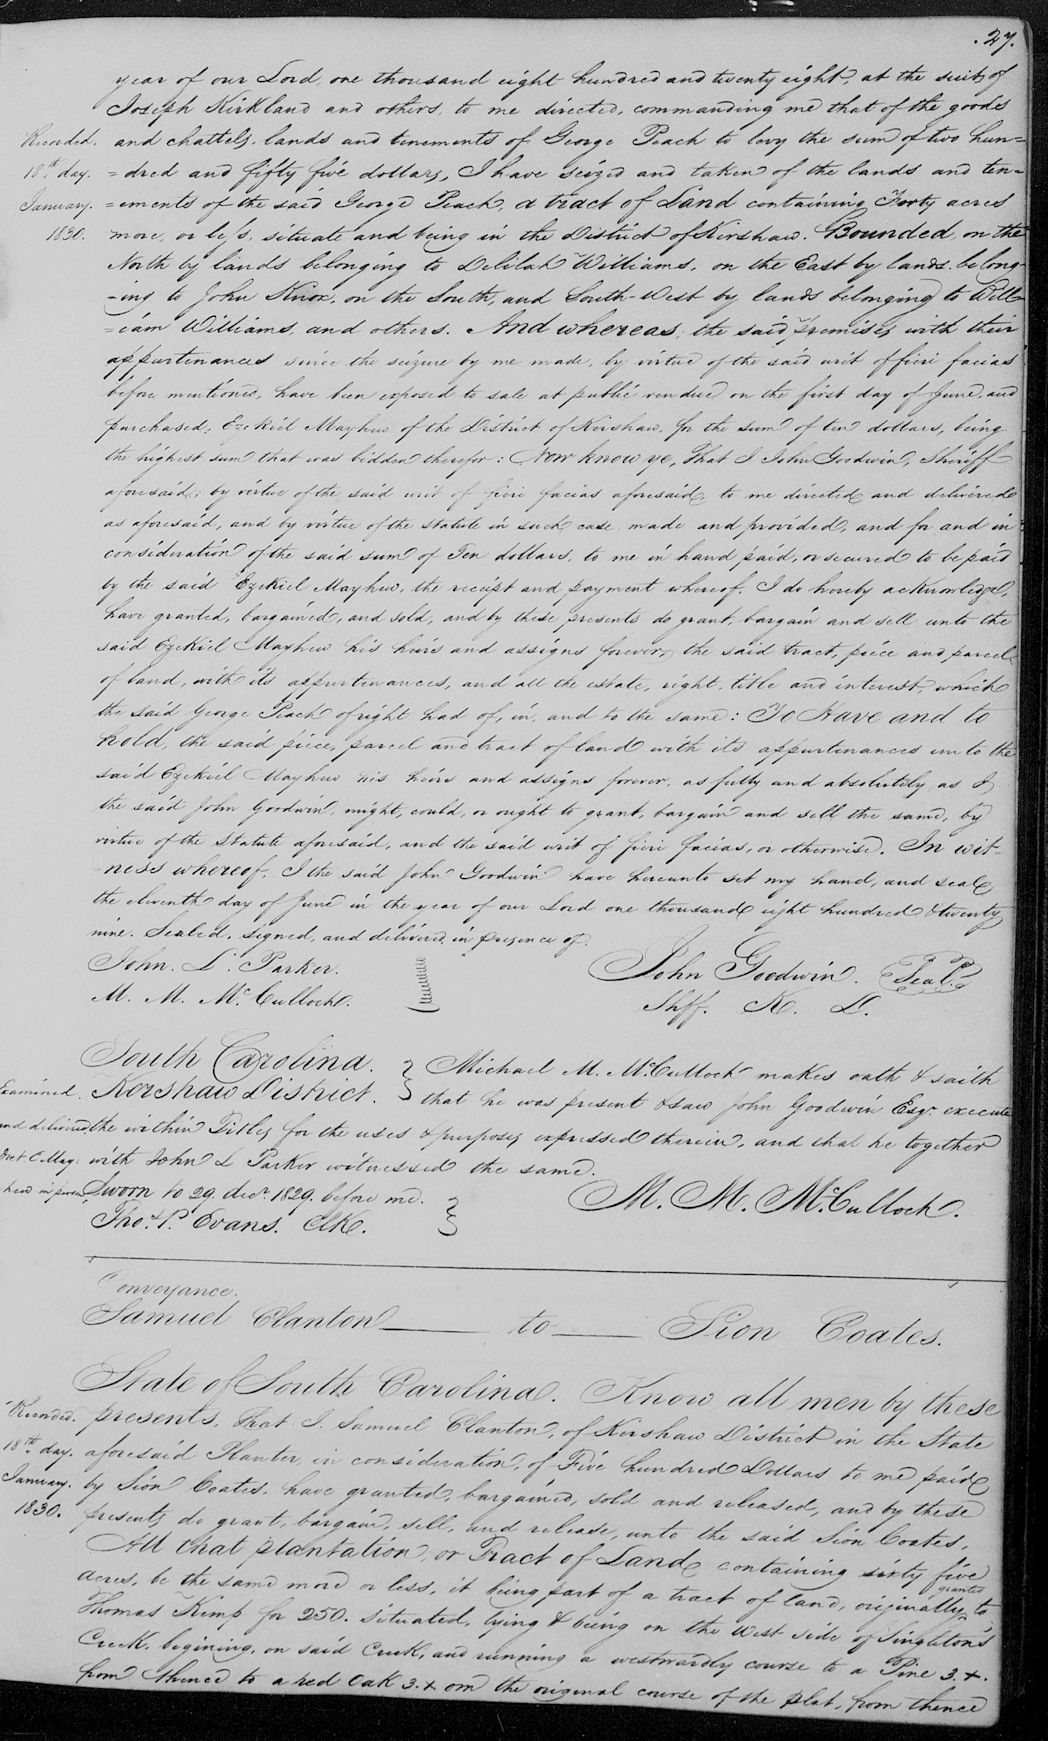 . 27.
year of our Lord, one thousand eight hundred and twenty eight, at the suit of
Joseph Kirkland and others, to me directed, commanding me that of the goods
and chattels, lands and tenements of George Peach to levy the sum of two hun=
=dred and fifty five dollars, I have seized and taken of the lands and ten=
=ements of the said George Peach, a tract of Land containing Forty acres
more, or less, situate and being in the District of Kershaw. Bounded, on the
North by lands belonging to Delilah Williams, on the East by lands belong-
-ing to John Knox, on the South, and South-West by lands belonging to Will=
=iam Williams, and others. And whereas, the said premises with their
appurtenances since the seizure by me made, by virtue of the said writ of fieri facias
before mentioned, have been exposed to sale at public vendue on the first day of June, and
purchased, Ezekiel Mayhew of the District of Kershaw, for the sum of ten dollars, being
the highest sum that was bidden therefor: Now know ye, That I John Goodwin, Sheriff
aforesaid, by virtue of the said writ of fieri facias aforesaid, to me directed and delivered
as aforesaid, and by virtue of the statute in such case made and provided, and for and in
consideration of the said sum of Ten dollars, to me in hand paid, or secured to be paid
by the said Ezekiel Mayhew, the receipt and payment whereof, I do hereby acknowledge,
have granted, bargained, and sold, and by these presents do grant, bargain and sell unto the
said Ezekiel Mayhew his heirs and assigns forever, the said tract, piece and parcel
of land, with its appurtenances, and all the estate, right, title and interest, which
the said George Peach of right had of, in, and to the same: To Have and to
hold, the said piece, parcel and tract of land with its appurtenances unto the
said Ezekiel Mayhew his heirs and assigns forever, as fully and absolutely as I,
the said John Goodwin, might, could, or ought to grant, bargain and sell the same, by
virtue of the Statute aforesaid, and the said writ of fieri facias, or otherwise. In wit-
-ness whereof, I the said John Goodwin have hereunto set my hand, and seal,
the eleventh day of June in the year of our Lord one thousand eight hundred & twenty
nine. Sealed, signed, and delivered, in presence of
John. L. Parker.
M. M. McCulloch.
John Goodwin. Seal.
Shff. K. D.
Recorded.
18th day.
January.
1830.
South Carolina.
Kershaw District.
Michael M. McCulloch makes oath & saith
that he was present & saw John Goodwin Esqr. execute
the within Titles for the uses & purposes expressed therein, and that he together
with John L Parker witnessed the same.
Sworn to 29. decr. 1829. before me.
Thos. P. Evans. Clk.
M. M. McCulloch.
Examined.
and delivered
Conveyance.
Samuel Clanton to Sion Coates.
State of South Carolina. Know all men by these
presents, that I, Samuel Clanton, of Kershaw District in the State
aforesaid Planter, in consideration, of Five hundred Dollars to me paid
by Sion Coates, have granted, bargained, sold and released, and by these
presents do grant, bargain, sell, and release, unto the said Sion Coates,
All that plantation, or Tract of Land containing sixty five
acres, be the same more or less, it being part of a tract of land, originally granted to
Thomas Kemp for 250. situated, lying & being on the West side of Singleton's
Creek, begining, on said Creek, and running a westwardly course to a Pine 3.x.
from thence to a red Oak 3.x on the original course of the plat, from thence
Recorded.
18th day.
January.
1830.